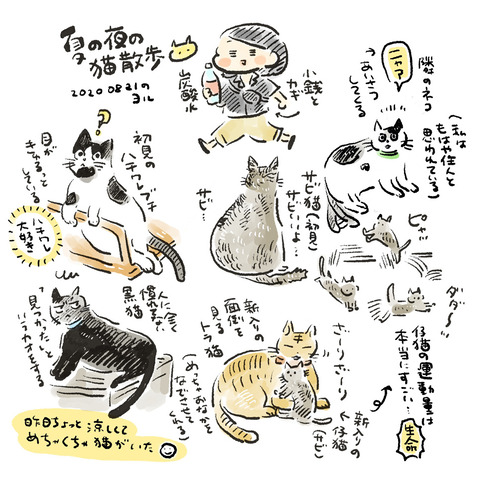 夏の夜の
猫散歩
2020 08 21の
ヨル
小銭と
カギ
炭酸水
ニャ?
隣のネコ
→あいさつ
してくる
(私は
もはや住人と
思われている)
?
初見の
ハチワレブチ
目が
きゅるっと
している
ハチワレ
大好き
サビ猫(初見)
サビ〜いよ…
サビ…
ピャッ
ダダ〜ッ
仔猫の運動量は
本当にすごい…
生命
人に全く
慣れない
黒猫
見つかった!と
いうカオをする
新入りの
面倒を
見る
トラ猫
(めっちゃおなかを
なでさせて
くれる)
ざーりざーり
新入りの
仔猫
(サビ)
昨日ちょっと涼しくて
めちゃくちゃ猫がいた